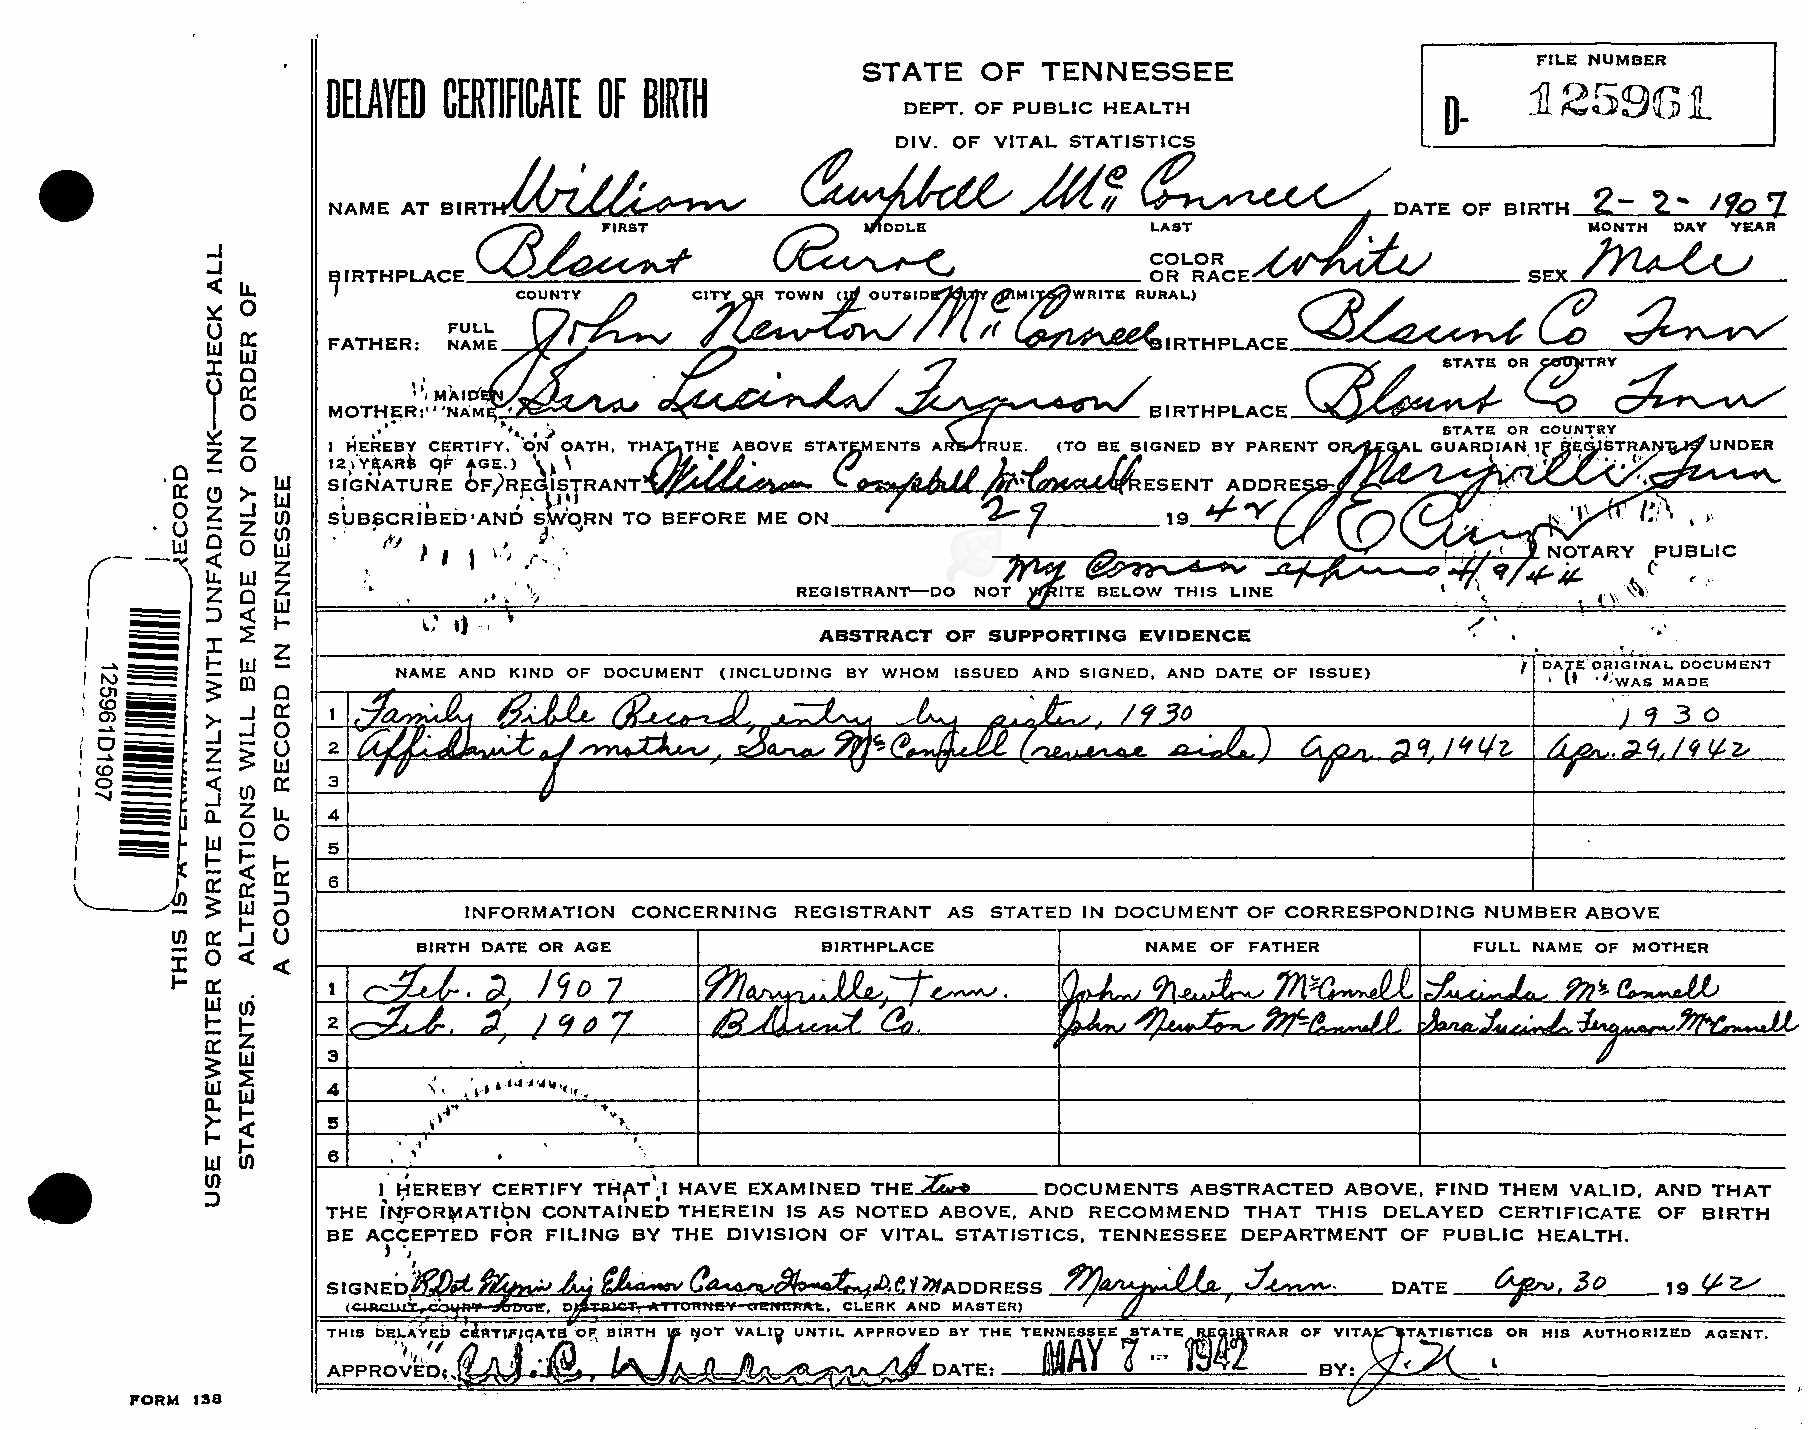 DELAYED CERTIFICATE OF BIRTH
STATE OF TENNESSEE
DEPT. OF PUBLIC HEALTH
DIV. OF VITAL STATISTICS
FILE NUMBER
D- 125961
NAME AT BIRTH William Campbell McConnell DATE OF BIRTH 2-2-1907
FIRST MIDDLE LAST MONTH DAY YEAR
BIRTHPLACE Blount Rural COLOR OR RACE White SEX Male
COUNTY CITY OR TOWN (IF OUTSIDE CITY LIMITS, WRITE RURAL)
FATHER: FULL NAME John Newton McConnell BIRTHPLACE Blount Co Tenn
STATE OR COUNTRY
MOTHER: MAIDEN NAME Sara Lucinda Ferguson BIRTHPLACE Blount Co Tenn
STATE OR COUNTRY
I HEREBY CERTIFY, ON OATH, THAT THE ABOVE STATEMENTS ARE TRUE. (TO BE SIGNED BY PARENT OR LEGAL GUARDIAN IF REGISTRANT IS UNDER
12 YEARS OF AGE.)
SIGNATURE OF REGISTRANT William Campbell McConnell PRESENT ADDRESS Maryville Tenn
SUBSCRIBED AND SWORN TO BEFORE ME ON 29 19 42
NOTARY PUBLIC
My Comson expires 4/9/44
REGISTRANT—DO NOT WRITE BELOW THIS LINE
ABSTRACT OF SUPPORTING EVIDENCE
NAME AND KIND OF DOCUMENT (INCLUDING BY WHOM ISSUED AND SIGNED, AND DATE OF ISSUE) DATE ORIGINAL DOCUMENT WAS MADE
1 Family Bible Record, entry by sister, 1930 1930
2 Affidavit of mother, Sara McConnell (reverse side) Apr. 29, 1942 Apr. 29, 1942
3
4
5
6
INFORMATION CONCERNING REGISTRANT AS STATED IN DOCUMENT OF CORRESPONDING NUMBER ABOVE
BIRTH DATE OR AGE BIRTHPLACE NAME OF FATHER FULL NAME OF MOTHER
1 Feb. 2, 1907 Maryville, Tenn. John Newton McConnell Lucinda McConnell
2 Feb. 2, 1907 Blount Co. John Newton McConnell Sara Lucinda Ferguson McConnell
3
4
5
6
I HEREBY CERTIFY THAT I HAVE EXAMINED THE two DOCUMENTS ABSTRACTED ABOVE, FIND THEM VALID, AND THAT
THE INFORMATION CONTAINED THEREIN IS AS NOTED ABOVE, AND RECOMMEND THAT THIS DELAYED CERTIFICATE OF BIRTH
BE ACCEPTED FOR FILING BY THE DIVISION OF VITAL STATISTICS, TENNESSEE DEPARTMENT OF PUBLIC HEALTH.
SIGNED by Eleanor Carson Houston, D.C.&M ADDRESS Maryville, Tenn. DATE Apr. 30 19 42
(CIRCUIT, COURT JUDGE, DISTRICT, ATTORNEY GENERAL, CLERK AND MASTER)
THIS DELAYED CERTIFICATE OF BIRTH IS NOT VALID UNTIL APPROVED BY THE TENNESSEE STATE REGISTRAR OF VITAL STATISTICS OR HIS AUTHORIZED AGENT.
APPROVED: W. C. Williams DATE: MAY 7 - 1942 BY: J.N.
FORM 138
USE TYPEWRITER OR WRITE PLAINLY WITH UNFADING INK—CHECK ALL
STATEMENTS. ALTERATIONS WILL BE MADE ONLY ON ORDER OF
A COURT OF RECORD IN TENNESSEE
THIS IS A RECORD
125961D1907